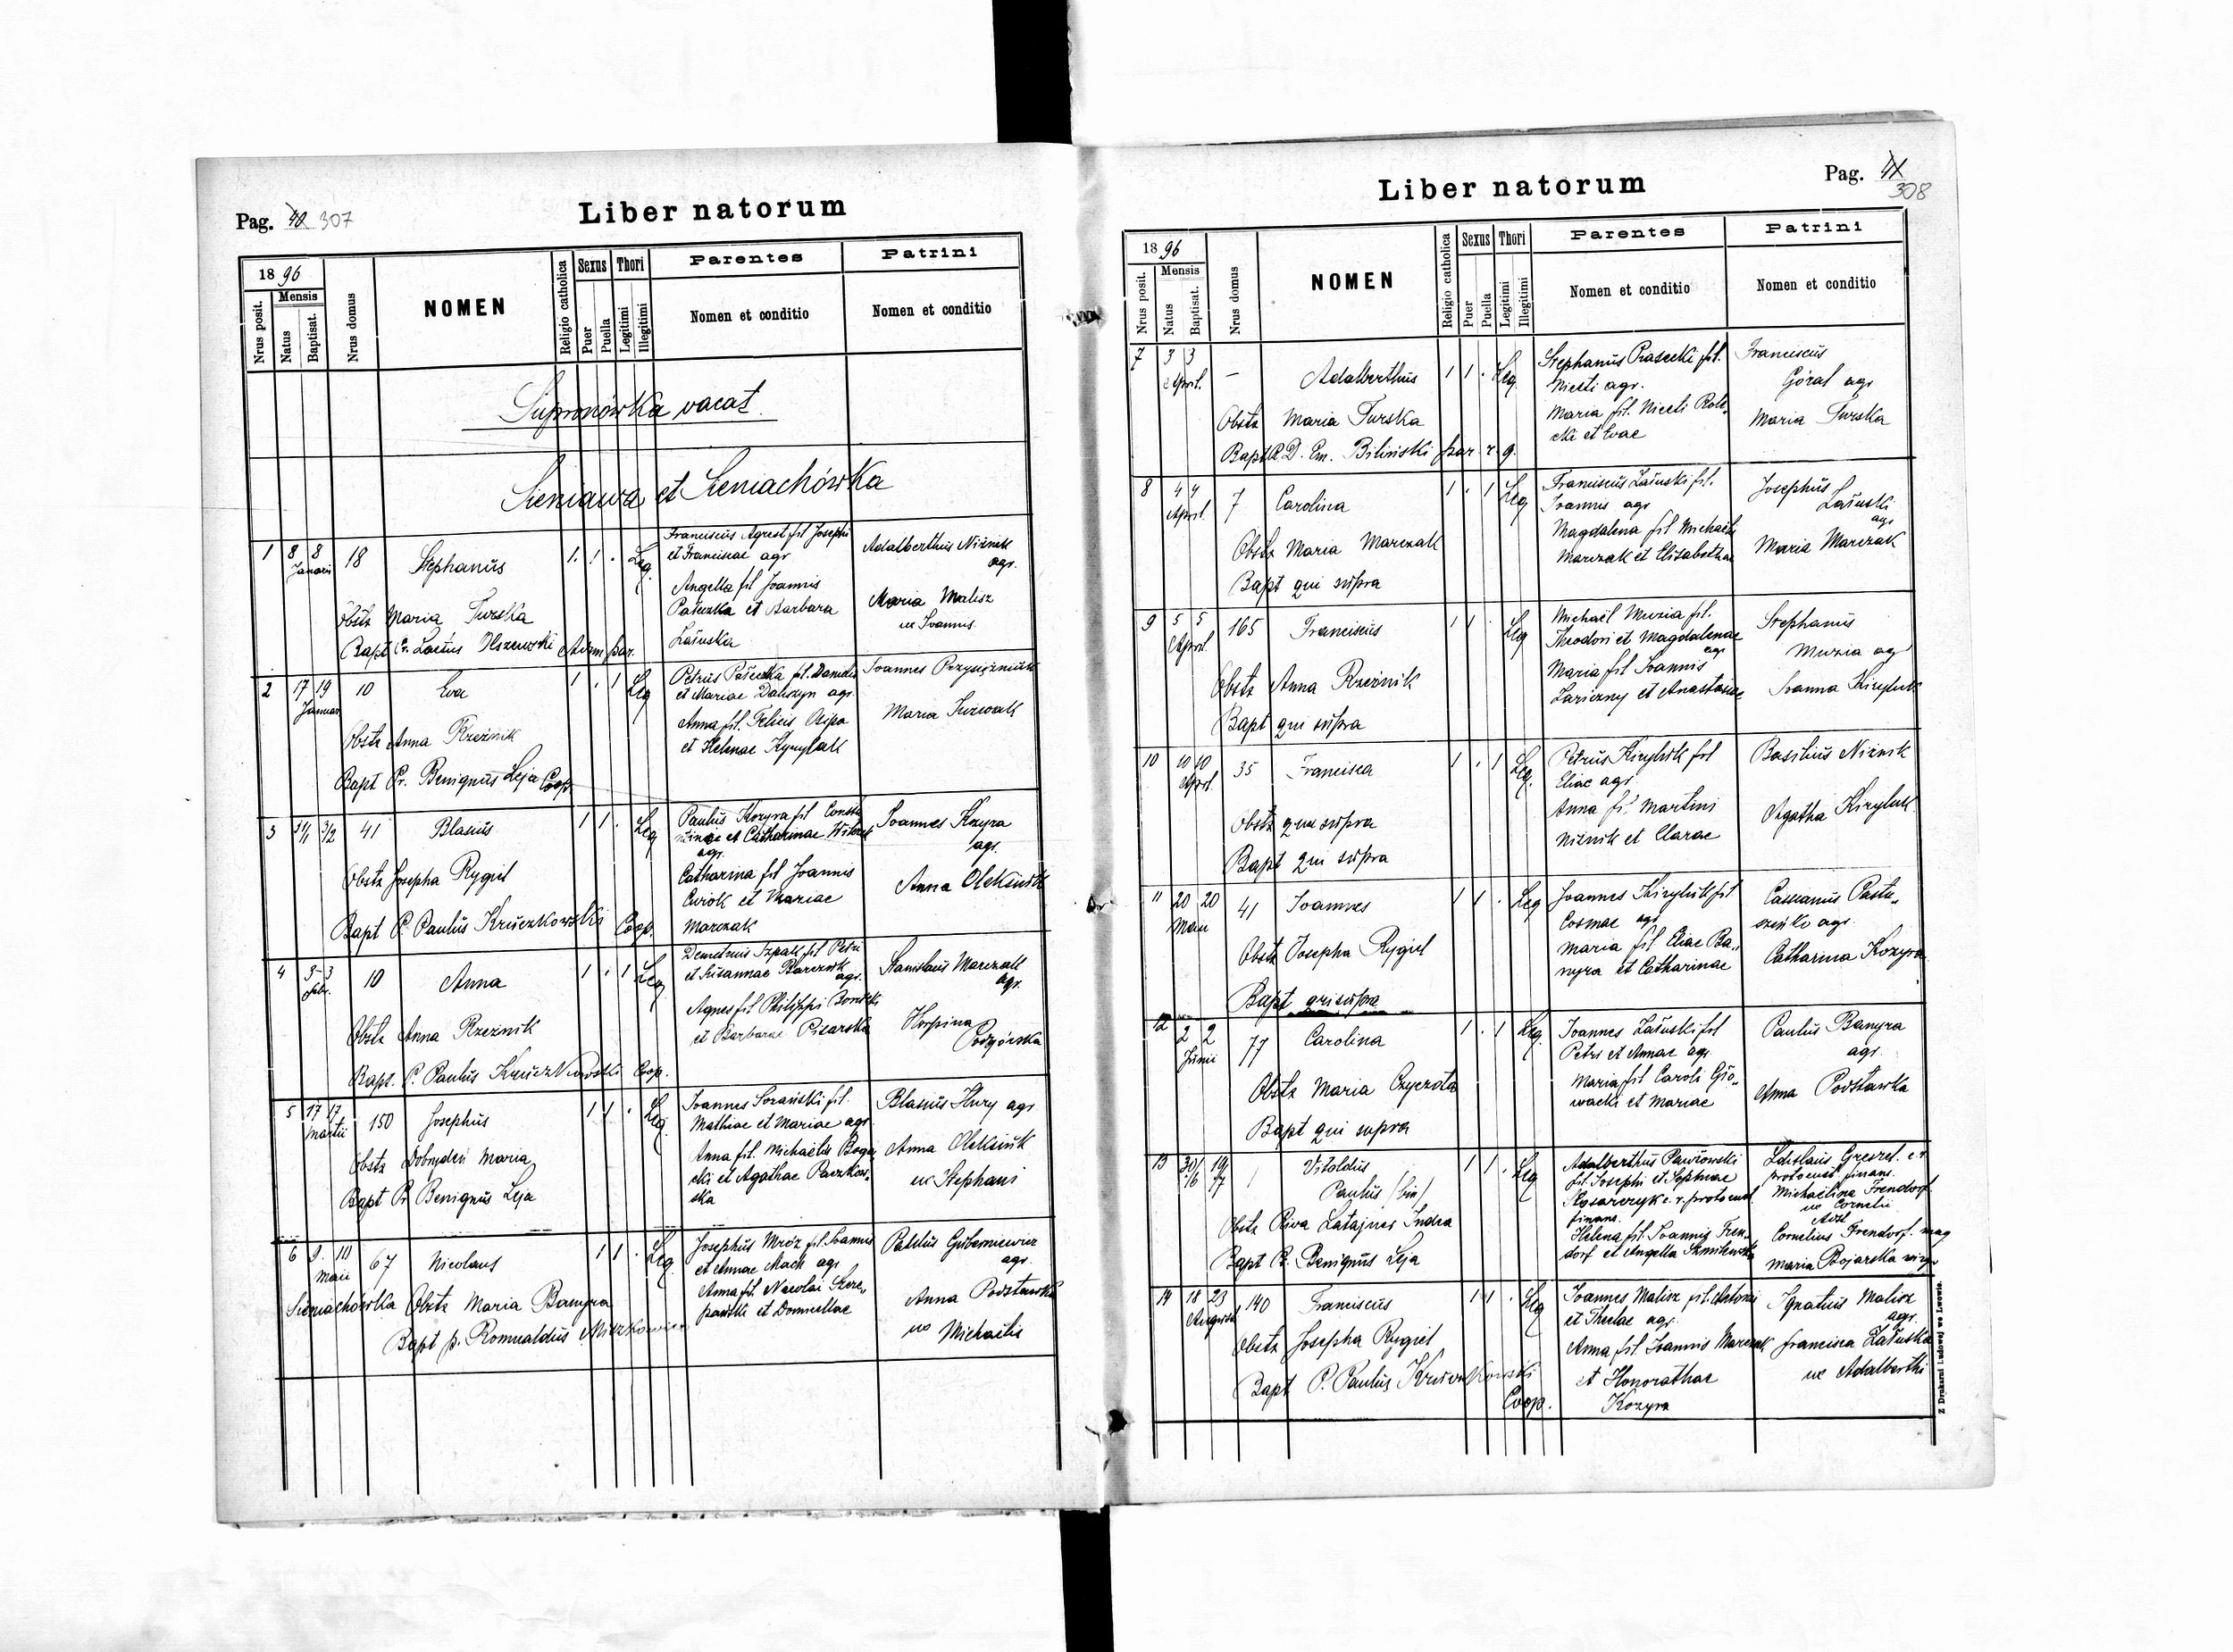 Pag. 40 307
Liber natorum
1896
Nrus posit.
Mensis
Natus
Baptisat.
Nrus domus
NOMEN
Religio catholica
Sexus
Puer
Puella
Thori
Legitimi
Illegitimi
Parentes
Nomen et conditio
Patrini
Nomen et conditio
Supronówka vacat.
Sieniawa et Sieniachówka
1 8 8 Januarii 18 Stephanus 1. 1. . Leg.
Obstz Maria Turska
Bapt P. Laetus Olszewski Adm par.
Franciscus Agrest fil Josephi
et Franciscae agr
Angella fil Joannis
Pałuzka et Barbara
Łatuska
Adalberthus Niżnik
agr.
Maria Malisz
ux Joannis
2 17 19 Januar 10 Eva 1 . 1 Leg
Obstz Anna Rzeźnik
Bapt Pr. Benignus Leja Coop.
Petrus fil. Danielis
et Mariae agr.
Anna fil. Felicis Osipa
et Helenae Kyrylak
Joannes Przysiężniuk
Maria
3 31/1 3/2 41 Blasius 1 1 . Leg
Obstz Josepha Rygiel
Bapt P. Paulus Kruczkowski Coop.
Paulus Kozyra fil Consta
et Catharinae
agr.
Catharina fil Joannis
Ćwiok et Mariae
Marczak
Joannes Kozyra
agr.
Anna Oleksiuk
4 3 3 Febr. 10 Anna 1 . 1 Leg
Obstz Anna Rzeźnik
Bapt. P. Paulus Kruczkowski Coop.
Demetrius Szpak fil Petri
et Susannae agr.
Agnes fil Philippi
et Barbarae Pisarska
Stanislaus Marczak
agr.
Horpina
Podgórska
5 17 17 Martii 150 Josephus 1 1 . Leg.
Obstz Dobrydzń Maria
Bapt Pr Benignus Leja
Joannes Sozański fil.
Mathiae et Mariae agr
Anna fil. Michaëlis Boga
cki et Agathae Paczkow-
ska
Blasius Hury agr
Anna Oleksiuk
ux Stephani
6 9. 10 Maii 67 Nicolaus 1 1 . Leg.
Sieniachówka Obstz Maria Banyra
Bapt p. Romualdus Mitzkowicz
Josephus Mróz fil. Joannis
et Annae Mach agr
Anna fil. Nicolai Szcze-
pański et Domicellae
Paulus Guberniewicz
agr.
Anna Podstawska
ux Michaëlis
Liber natorum
Pag. 41
308
1896
Nrus posit.
Mensis
Natus
Baptisat.
Nrus domus
NOMEN
Religio catholica
Sexus
Puer
Puella
Thori
Legitimi
Illegitimi
Parentes
Nomen et conditio
Patrini
Nomen et conditio
7 3 3 April. — Adalberthus 1 1 . Leg.
Obstz Maria Turska
Bapt R. D. Em. Biliński par r. g.
Stephanus Prasecki fil.
Niceti agr.
Maria fil. Niceti Rola-
cki et Evae
Franciscus
Góral agr
Maria Turska
8 4 4 April. 7 Carolina 1 . 1 Leg
Obstz Maria Marczak
Bapt qui supra
Franciscus Łatuski fil.
Joannis agr
Magdalena fil Michaëlis
Marczak et Elisabethae
Josephus
Łatuski
agr
Maria Marczak
9 5 5 April 165 Franciscus 1 1 . Leg
Obstz Anna Rzeźnik
Bapt qui supra
Michaël Muzia fil.
Theodori et Magdalenae
agr
Maria fil Joannis
Zariczny et Anastasiae
Stephanus
Muzia agr
Joanna Kiryluk
10 10 10 April. 35 Francisca 1 . 1 Leg.
Obstz quae supra
Bapt qui supra
Petrus Kiryluk fil
Eliae agr.
Anna fil. Martini
Niżnik et Clarae
Basilius Niżnik
Agatha Kiryluk
11 20 20 Maii 41 Joannes 1 1 . Leg
Obstz Josepha Rygiel
Bapt qui supra
Joannes Kiryluk fil
Cosmae agr
Maria fil Eliae Ba-
nyra et Catharinae
Cassianus Pastu-
szeńko agr.
Catharina Kozyra
12 2 2 Junii 77 Carolina 1 . 1 Leg.
Obstz Maria Czyczota
Bapt qui supra
Joannes Łatuski fil
Petri et Annae agr.
Maria fil Caroli Gło-
wacki et Mariae
Paulus Banyra
agr.
Anna Podstawka
13 30/6 19/7 1 Vitoldus 1 1 . Leg
Paulus /bin/
Obstz Riva Latajner Indra
Bapt Pr. Benignus Leja
Adalberthus Pawłowski
fil. Josephi et Sophiae
Ślosarczyk c. r.
finans.
Helena fil. Joannis Fren-
dorf et Angella
Ladislaus c. r.
finans.
Michaëlina Frendorf
ux Cornelii
Cornelius Frendorf. mag
Maria Bojarska virgo
14 18 23 Augusti 140 Franciscus 1 1 . Leg
Obstz Josepha Rygiel
Bapt P. Paulus Kruczkowski
Coop.
Joannes Malisz fil. Antonii
et Theclae agr.
Anna fil. Joannis Marczak
et Honorathae
Kozyra
Ignatius Malisz
agr.
Francisca Łatuska
ux Adalberthi
Z Drukarni Ludowej we Lwowie.